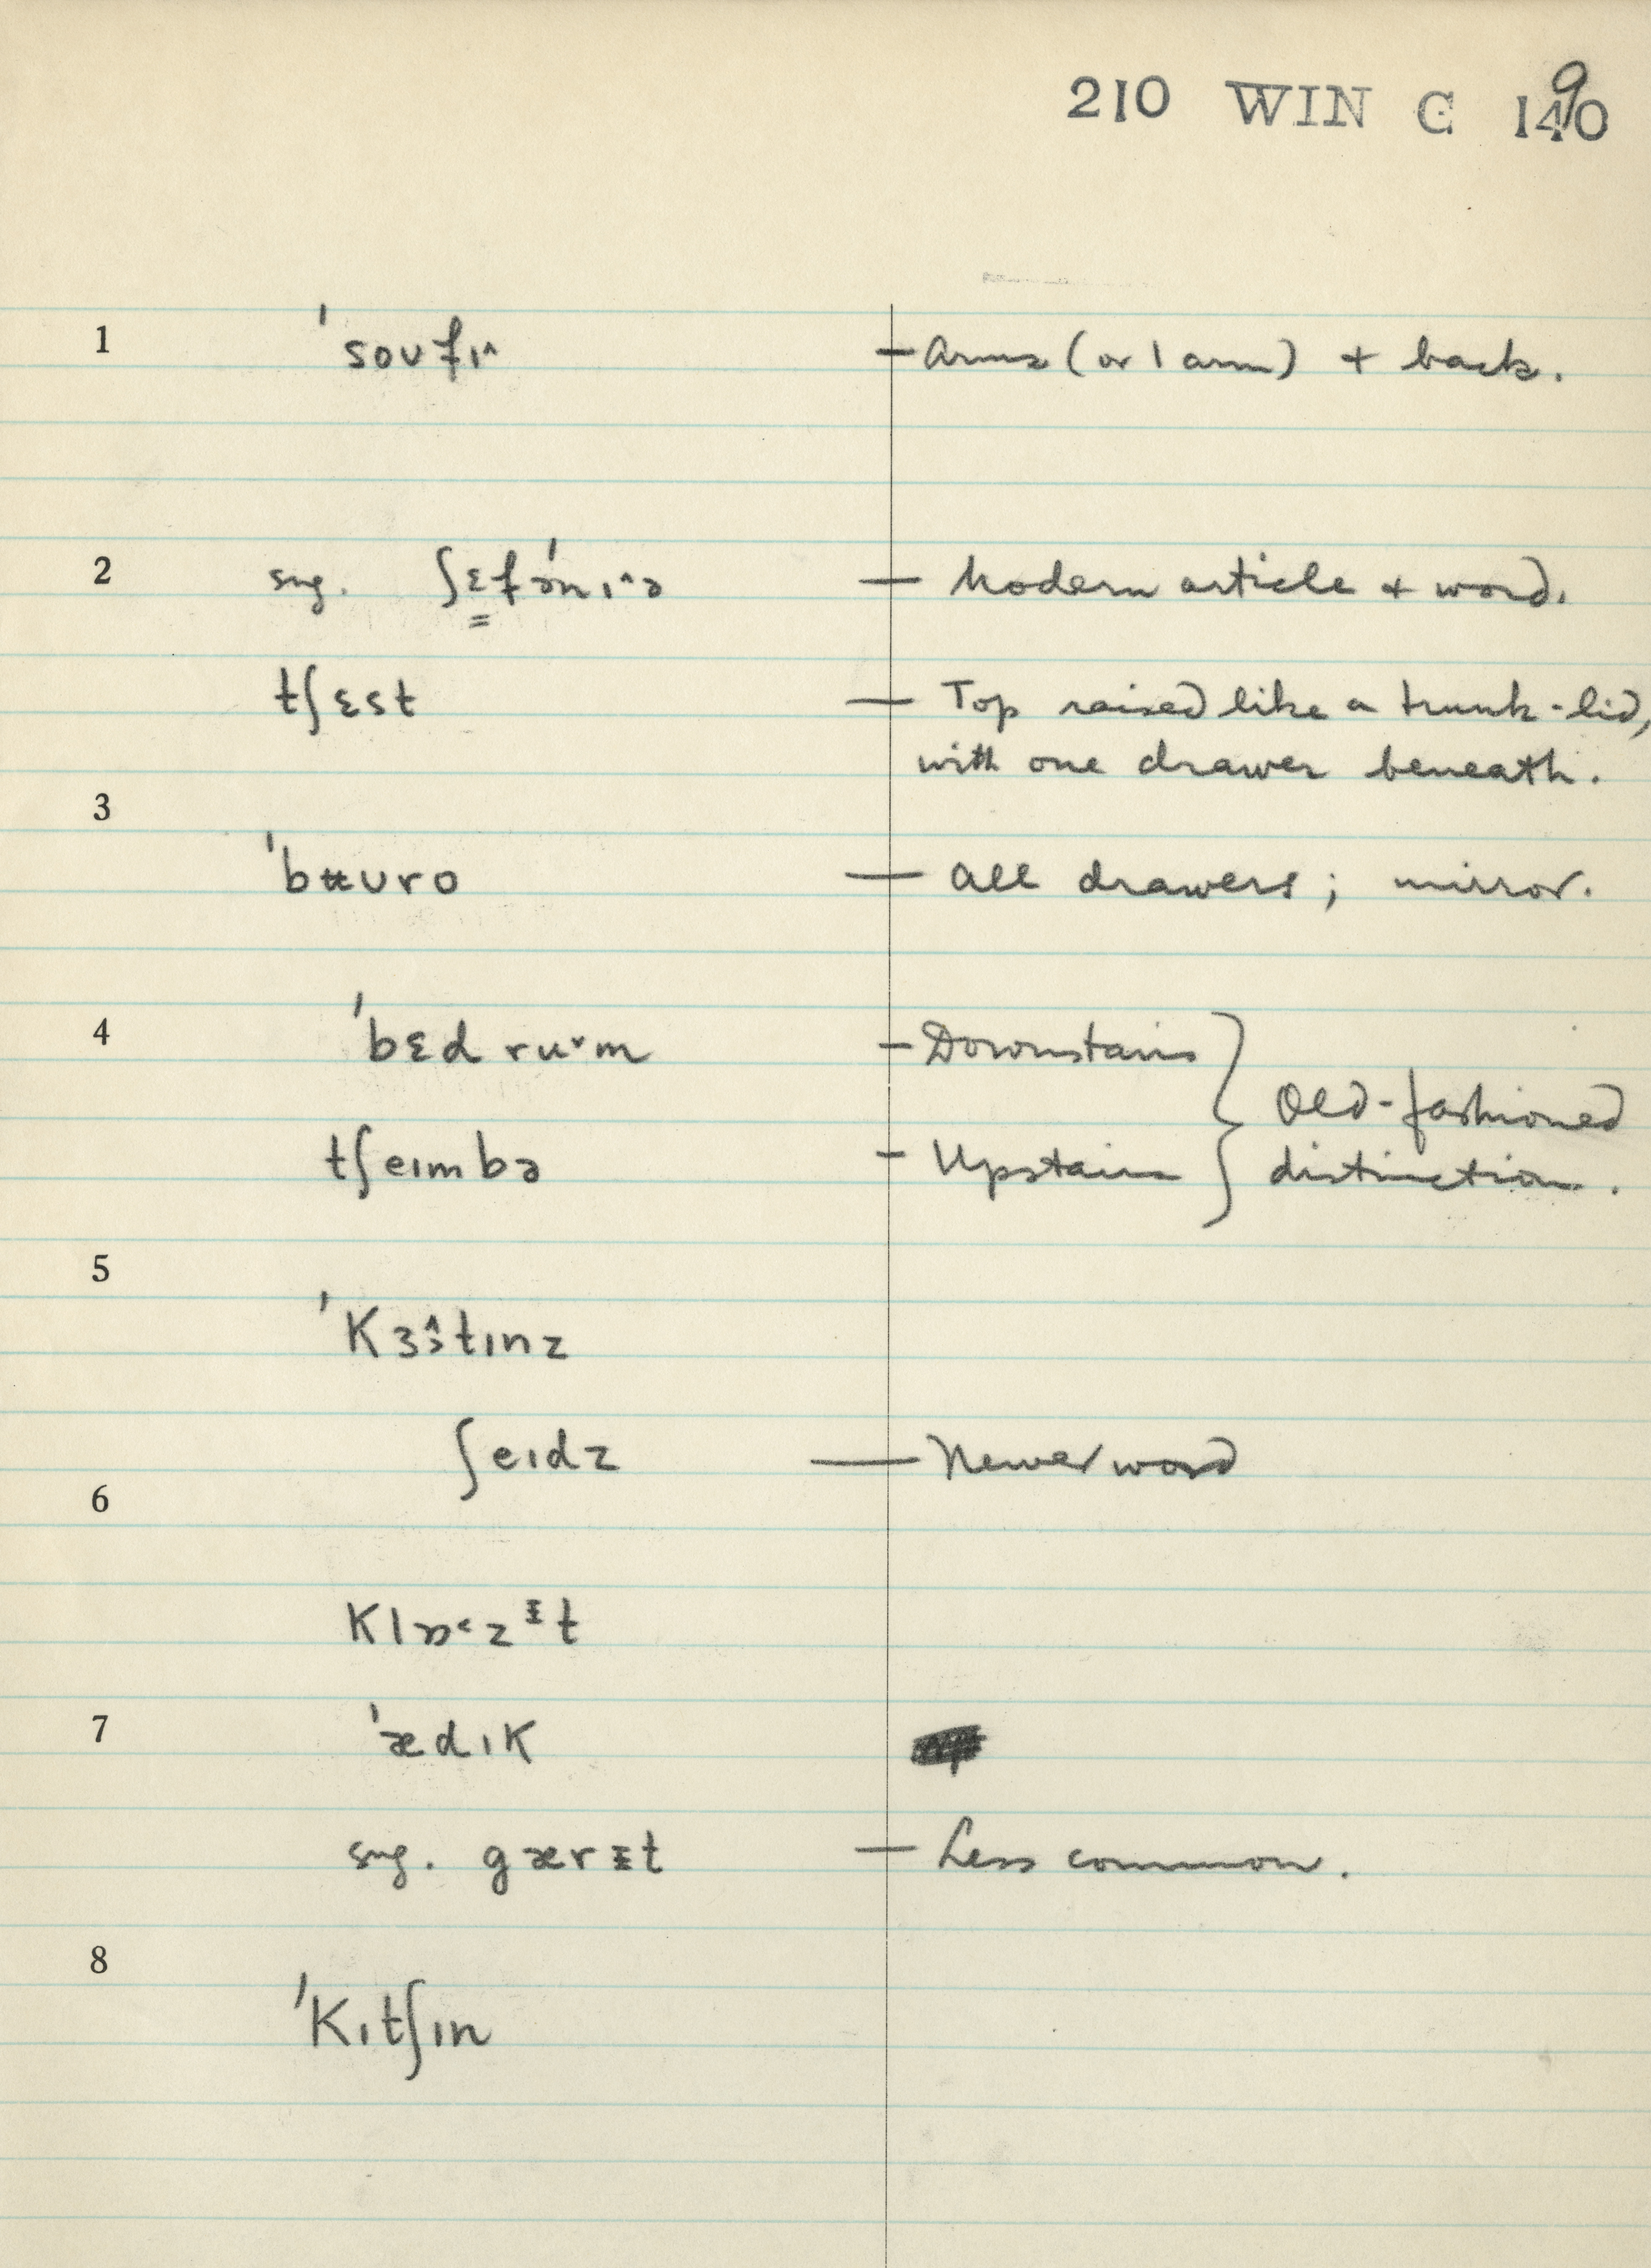 210 WIN C 190
1 ˈsoufɪ^ – Arms (or 1 arm) + back.
2 sug. ʃɛfəˈnɪ^ə – Modern article & word.
tʃɛst – Top raised like a trunk-lid,
with one drawer beneath.
3
ˈbʉuro – All drawers; mirror.
4 ˈbɛd ruᵛm – Downstairs
Old-fashioned
tʃeɪmbə – Upstairs distinction.
5
ˈkɜə^tɪnz
ʃeɪdz – Newer word
6
klɒ˂zᵻt
7 ˈædɪk
sug. gærᵻt – Less common.
8
ˈkɪtʃɪn